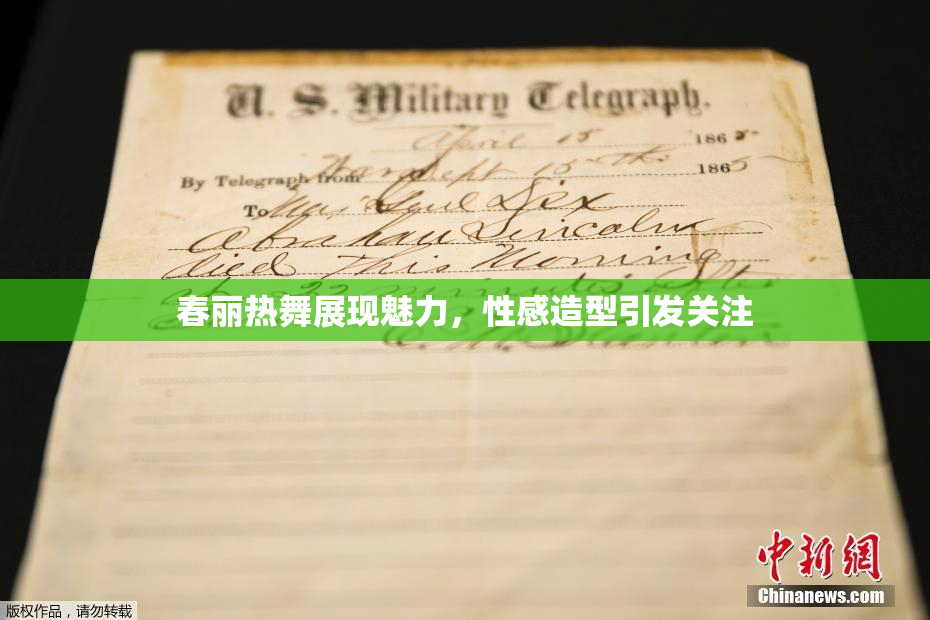 U. S. Military Telegraph.
April 15 1865
By Telegraph from War Dept 15th 1865
To Maj Genl Dix
Abraham Lincoln
died This Morning
at 22 minutes after
春丽热舞展现魅力，性感造型引发关注
E. M. Stanton
中新网
Chinanews.com
版权作品，请勿转载